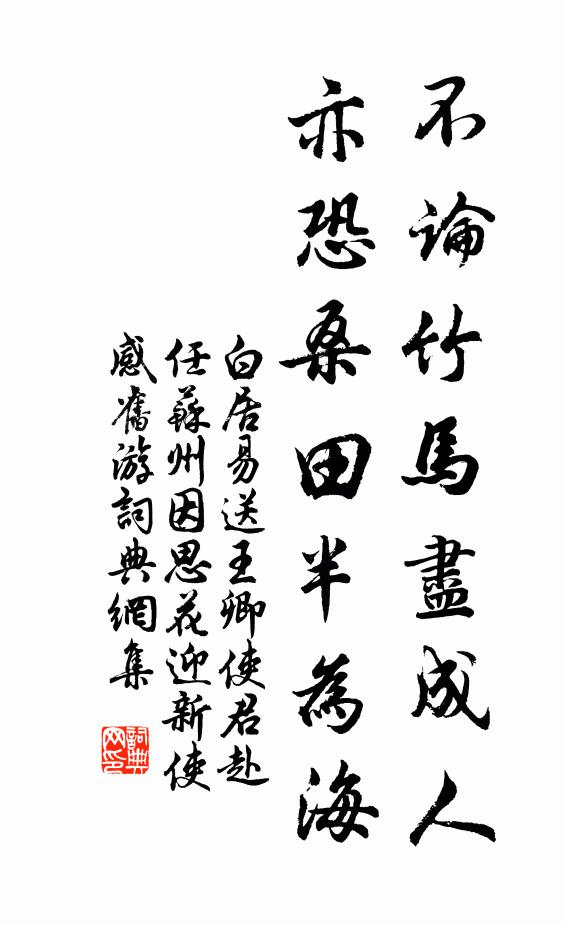 不論竹馬盡成人
亦恐桑田半為海
白居易送王卿使君赴
任蘇州因思花迎新使
感舊游詞典網集
詞典网印